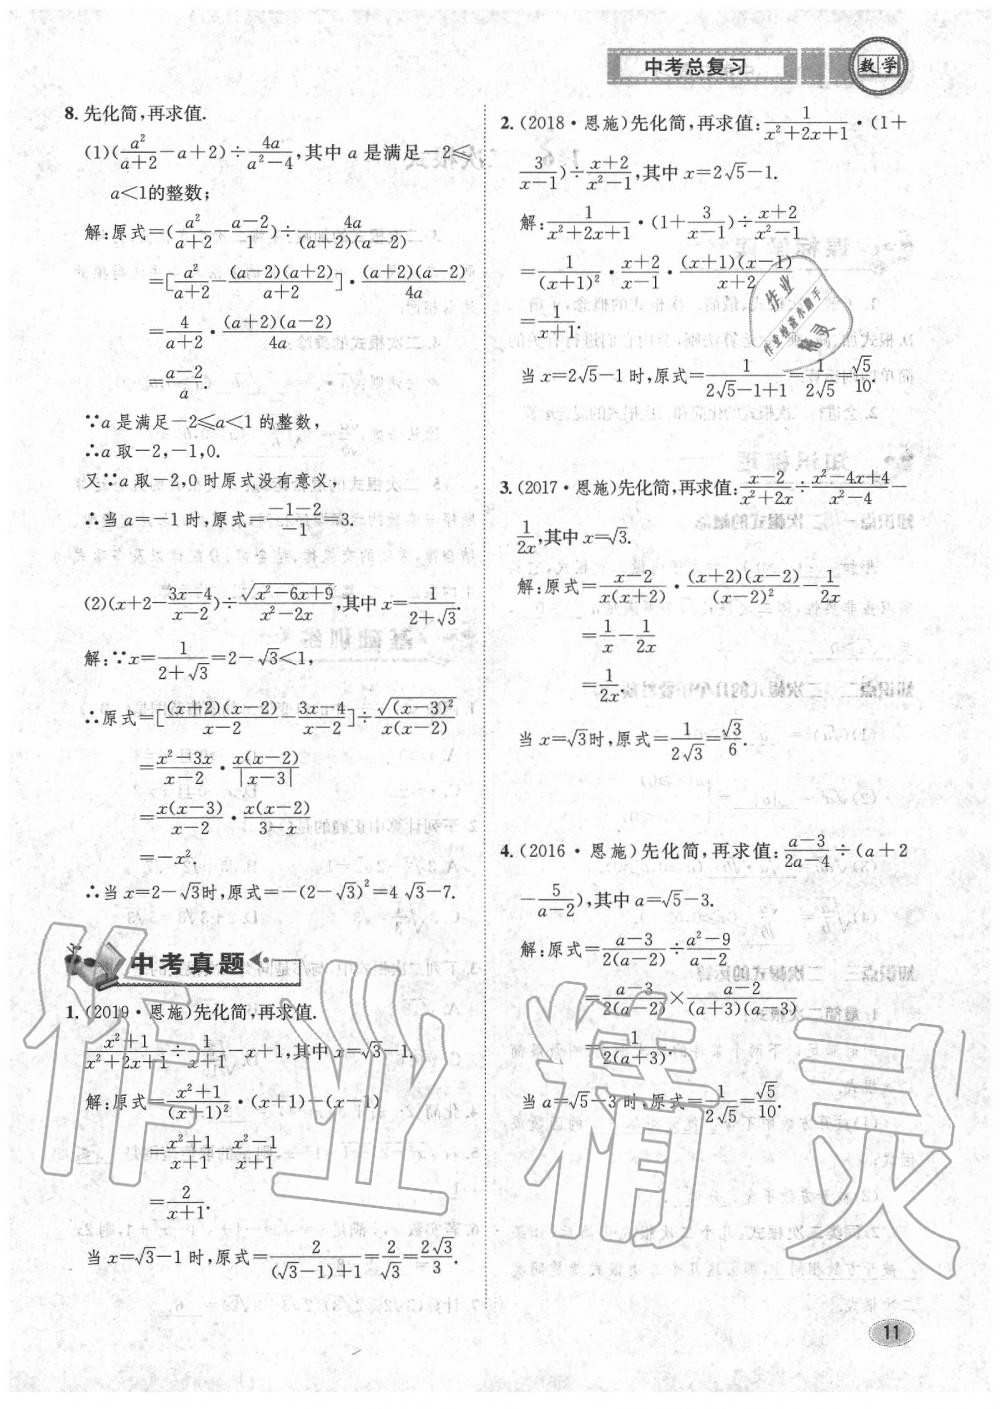 中考总复习 数学
8. 先化简,再求值.
(1)(a²/(a+2)-a+2)÷4a/(a²-4),其中 a 是满足-2≤
a<1的整数;
解:原式=(a²/(a+2)-(a-2)/1)÷4a/((a+2)(a-2))
=[a²/(a+2)-(a-2)(a+2)/(a+2)]·(a+2)(a-2)/4a
=4/(a+2)·(a+2)(a-2)/4a
=(a-2)/a.
∵a 是满足-2≤a<1 的整数,
∴a 取-2,-1,0.
又∵a 取-2,0 时原式没有意义,
∴当 a=-1 时,原式=(-1-2)/(-1)=3.
(2)(x+2-(3x-4)/(x-2))÷√(x²-6x+9)/(x²-2x),其中 x=1/(2+√3).
解:∵x=1/(2+√3)=2-√3<1,
∴原式=[(x+2)(x-2)/(x-2)-(3x-4)/(x-2)]÷√((x-3)²)/(x(x-2))
=(x²-3x)/(x-2)·x(x-2)/|x-3|
=x(x-3)/(x-2)·x(x-2)/(3-x)
=-x².
∴当 x=2-√3时,原式=-(2-√3)²=4√3-7.
中考真题
1. (2019·恩施)先化简,再求值.
(x²+1)/(x²+2x+1)÷1/(x+1)-x+1,其中 x=√3-1.
解:原式=(x²+1)/(x+1)²·(x+1)-(x-1)
=(x²+1)/(x+1)-(x²-1)/(x+1)
=2/(x+1).
当 x=√3-1 时,原式=2/((√3-1)+1)=2/√3=2√3/3.
2. (2018·恩施)先化简,再求值:1/(x²+2x+1)·(1+
3/(x-1))÷(x+2)/(x²-1),其中 x=2√5-1.
解:1/(x²+2x+1)·(1+3/(x-1))÷(x+2)/(x²-1)
=1/(x+1)²·(x+2)/(x-1)·(x+1)(x-1)/(x+2)
=1/(x+1).
当 x=2√5-1 时,原式=1/(2√5-1+1)=1/(2√5)=√5/10.
3. (2017·恩施)先化简,再求值:(x-2)/(x²+2x)÷(x²-4x+4)/(x²-4)-
1/2x,其中 x=√3.
解:原式=(x-2)/(x(x+2))·(x+2)(x-2)/(x-2)²-1/2x
=1/x-1/2x
=1/2x.
当 x=√3时,原式=1/(2√3)=√3/6.
4. (2016·恩施)先化简,再求值:(a-3)/(2a-4)÷(a+2
-5/(a-2)),其中 a=√5-3.
解:原式=(a-3)/(2(a-2))÷(a²-9)/(a-2)
=(a-3)/(2(a-2))×(a-2)/((a+3)(a-3))
=1/(2(a+3)).
当 a=√5-3 时,原式=1/(2√5)=√5/10.
作业
作业检查小助手
精灵
作业精灵
11